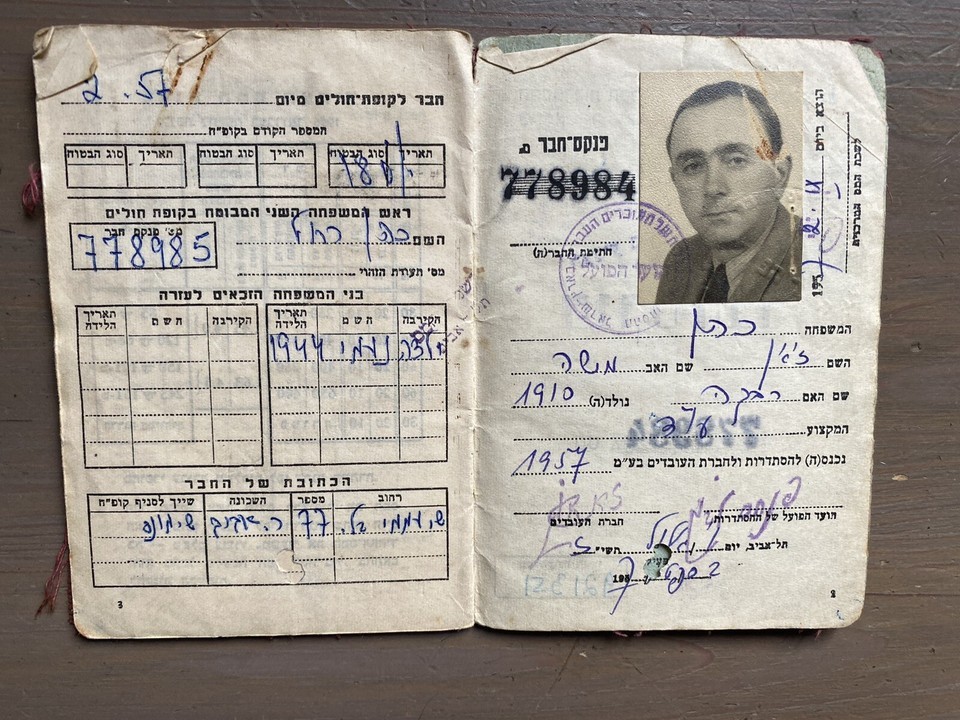 פנקס־חבר מס
778984
חתימת החבר(ה)
הוצא ביום
לשכת המס המרכזית
195
המשפחה כהן
השם ז'אן שם האב משה
שם האם רבקה נולד(ה) 1910
המקצוע
778984
נכנס(ה) להסתדרות ולחברת העובדים בע״מ 1957
הועד הפועל של ההסתדרות
חברת העובדים
תל־אביב, יום תשי"
195 7
2
חבר לקופת־חולים מיום 2.57
המספר הקודם בקופ״ח
תאריך סוג הבטוח תאריך סוג הבטוח תאריך סוג הבטוח
ראש המשפחה השני המבוטח בקופת חולים
השם כהן רחל
מס׳ פנקס חבר
778985
מס׳ תעודת הזהוי
בני המשפחה הזכאים לעזרה
הקירבה השם תאריך הלידה הקירבה השם תאריך הלידה
נעמי 1944
הכתובת של החבר
רחוב מספר השכונה שייך לסניף קופ״ח
77 ת. אביב
3